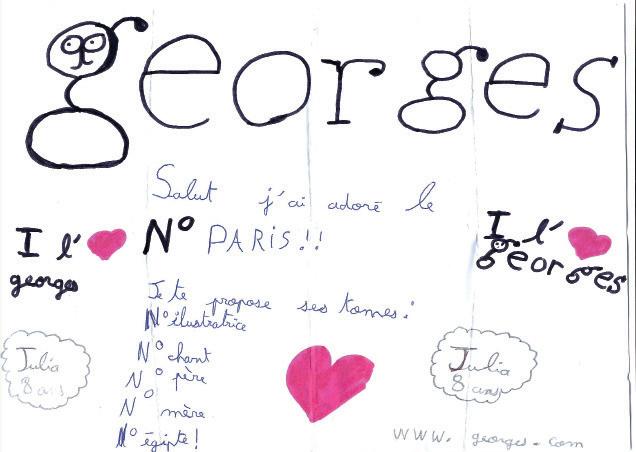 georges
Salut j'ai adoré le
N° PARIS!!
I l'
georges
I l'
georges
Je te propose ses tomes:
N° ilustratrice
N° chant
N° père
N° mère
N° égipte!
Julia
8 ans
Julia
8 ans
www. georges. com